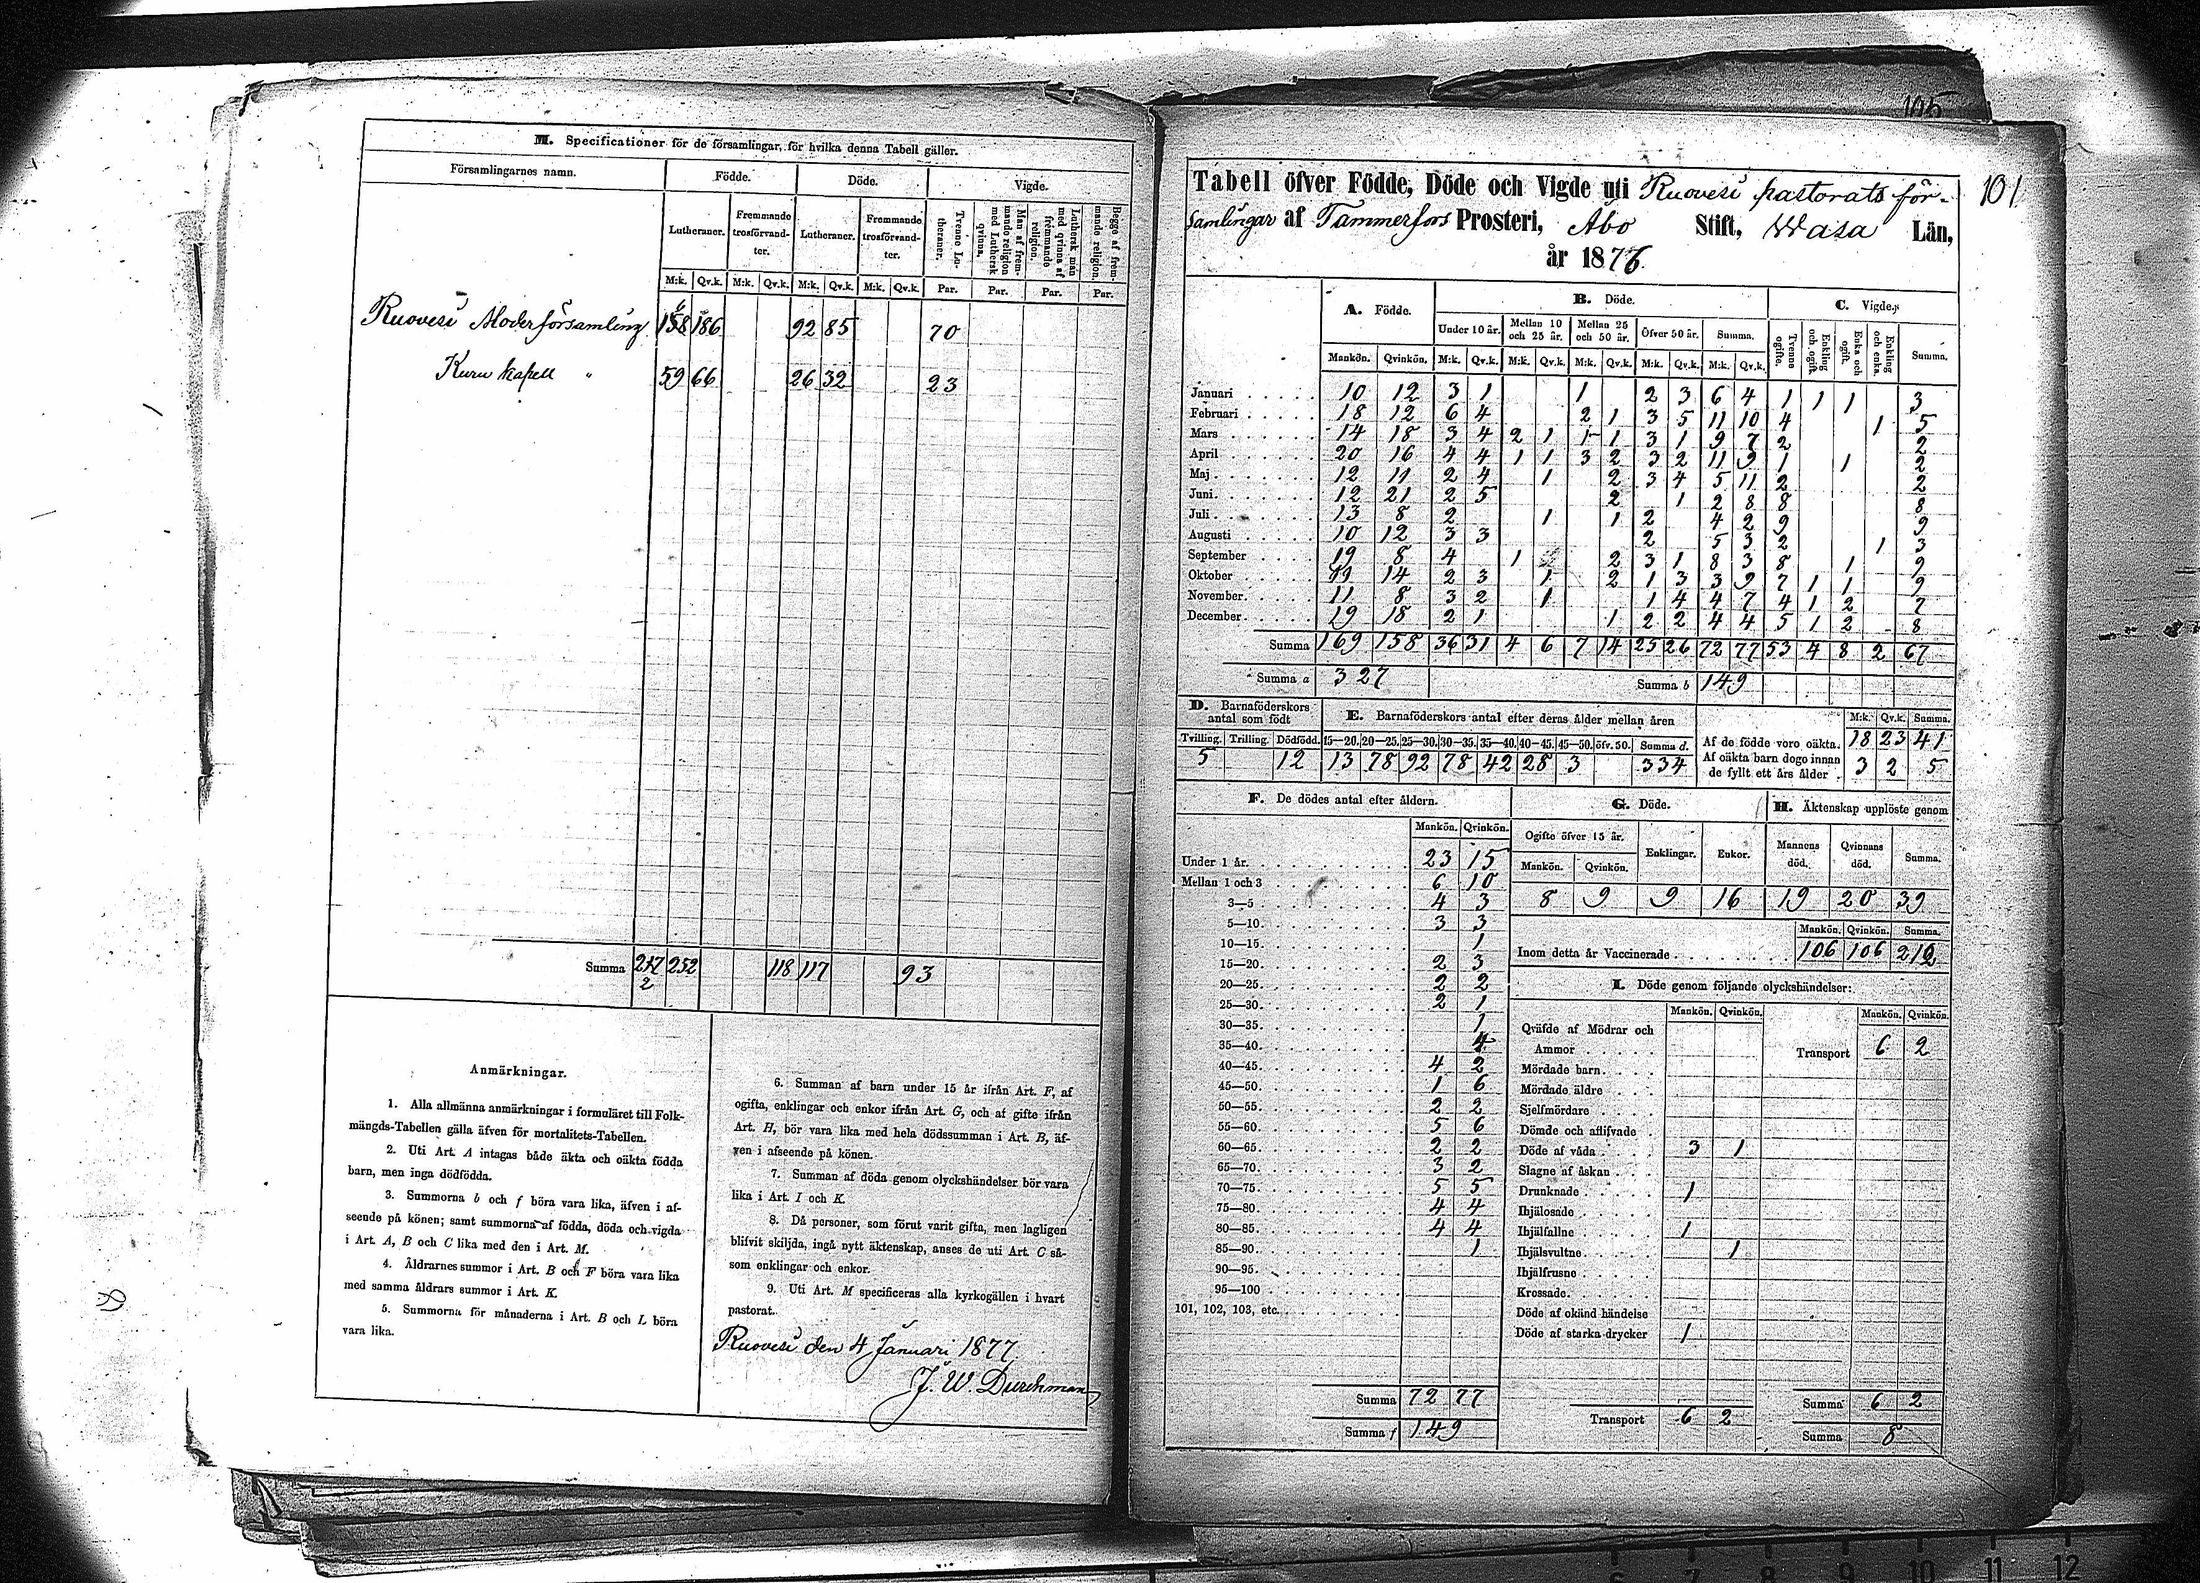 M. Specificationer för de församlingar, för hvilka denna Tabell gäller.
Församlingarnes namn. Födde. Döde. Vigde.
Lutheraner. Fremmande trosförvandter. Lutheraner. Fremmande trosförvandter. Tvenne Lutheraner. Man af fremmande religion med Luthersk qvinna. Luthersk man med qvinna af fremmande religion. Begge af fremmande religion.
M:k. Qv.k. M:k. Qv.k. M:k. Qv.k. M:k. Qv.k. Par. Par. Par. Par.
Ruovesi Moderförsamling 158 186 92 85 70
Kuru kapell " 59 66 26 32 23
Summa 217 252 118 117 93
2
Anmärkningar.
1. Alla allmänna anmärkningar i formuläret till Folk-
mängds-Tabellen gälla äfven för mortalitets-Tabellen.
2. Uti Art. A intagas både äkta och oäkta födda
barn, men inga dödfödda.
3. Summorna b och f böra vara lika, äfven i af-
seende på könen; samt summorna af födda, döda och vigda
i Art. A, B och C lika med den i Art. M.
4. Åldrarnes summor i Art. B och F böra vara lika
med samma åldrars summor i Art. K.
5. Summorna för månaderna i Art. B och L böra
vara lika.
6. Summan af barn under 15 år ifrån Art. F, af
ogifta, enklingar och enkor ifrån Art. G, och af gifte ifrån
Art. H, bör vara lika med hela dödssumman i Art. B, äf-
ven i afseende på könen.
7. Summan af döda genom olyckshändelser bör vara
lika i Art. I och K.
8. Då personer, som förut varit gifta, men lagligen
blifvit skiljda, ingå nytt äktenskap, anses de uti Art. C så-
som enklingar och enkor.
9. Uti Art. M specificeras alla kyrkogällen i hvart
pastorat.
Ruovesi den 4 Januari 1877
J. W. Durchman
105
101
Tabell öfver Födde, Döde och Vigde uti Ruovesi pastorats för-
samlingar af Tammerfors Prosteri, Åbo Stift, Wasa Län,
år 1876.
A. Födde. B. Döde. C. Vigde.
Under 10 år. Mellan 10 och 25 år. Mellan 25 och 50 år. Öfver 50 år. Summa. Tvenne ogifte. Enkling och ogift. Enka och ogift. Enkling och enka. Summa.
Mankön. Qvinkön. M:k. Qv.k. M:k. Qv.k. M:k. Qv.k. M:k. Qv.k. M:k. Qv.k.
Januari 10 12 3 1 1 2 3 6 4 1 1 1 3
Februari 18 12 6 4 2 1 3 5 11 10 4 1 5
Mars 14 18 3 4 2 1 1 1 3 1 9 7 2 2
April 20 16 4 4 1 1 3 2 3 2 11 9 1 1 2
Maj 12 11 2 4 1 2 3 4 5 11 2 2
Juni 12 21 2 5 2 1 2 8 8 8
Juli 13 8 2 1 1 2 4 2 9 9
Augusti 10 12 3 3 2 5 3 2 1 3
September 19 8 4 1 2 3 1 8 3 8 1 9
Oktober 14 2 3 1 2 1 3 3 9 7 1 1 9
November 11 8 3 2 1 1 4 4 7 4 1 2 7
December 19 18 2 1 1 2 2 4 4 5 1 2 8
Summa 169 158 36 31 4 6 7 14 25 26 72 77 53 4 8 2 67
Summa a 327 Summa b 149
D. Barnaföderskors antal som födt
Tvilling. Trilling. Dödfödd.
5 12
E. Barnaföderskors antal efter deras ålder mellan åren
15—20. 20—25. 25—30. 30—35. 35—40. 40—45. 45—50. öfv. 50. Summa d.
13 78 92 78 42 28 3 334
M:k. Qv.k. Summa.
Af de födde voro oäkta. 18 23 41
Af oäkta barn dogo innan de fyllt ett års ålder 3 2 5
F. De dödes antal efter åldern.
Mankön. Qvinkön.
Under 1 år. 23 15
Mellan 1 och 3 6 10
3—5 4 3
5—10. 3 3
10—15. 1
15—20. 2 3
20—25. 2 2
25—30. 2 1
30—35. 1
35—40. 4
40—45. 4 2
45—50. 1 6
50—55. 2 2
55—60. 5 6
60—65. 2 2
65—70. 3 2
70—75. 5 5
75—80. 4 4
80—85. 4 4
85—90. 1
90—95.
95—100
101, 102, 103, etc.
Summa 72 77
Summa f 149
G. Döde.
Ogifte öfver 15 år. Enklingar. Enkor.
Mankön. Qvinkön.
8 9 9 16
H. Äktenskap upplöste genom
Mannens död. Qvinnans död. Summa.
19 20 39
Mankön. Qvinkön. Summa.
Inom detta år Vaccinerade 106 106 212
I. Döde genom följande olyckshändelser:
Mankön. Qvinkön. Mankön. Qvinkön.
Qväfde af Mödrar och
Ammor
Transport 6 2
Mördade barn.
Mördade äldre
Sjelfmördare
Dömde och aflifvade
Döde af våda 3 1
Slagne af åskan
Drunknade 1
Ihjälosade
Ihjälfallne 1
Ihjälsvultne 1
Ihjälfrusne
Krossade.
Döde af okänd händelse
Döde af starka drycker 1
Transport 6 2
Summa 6 2
Summa 8
6 7 8 9 10 11 12